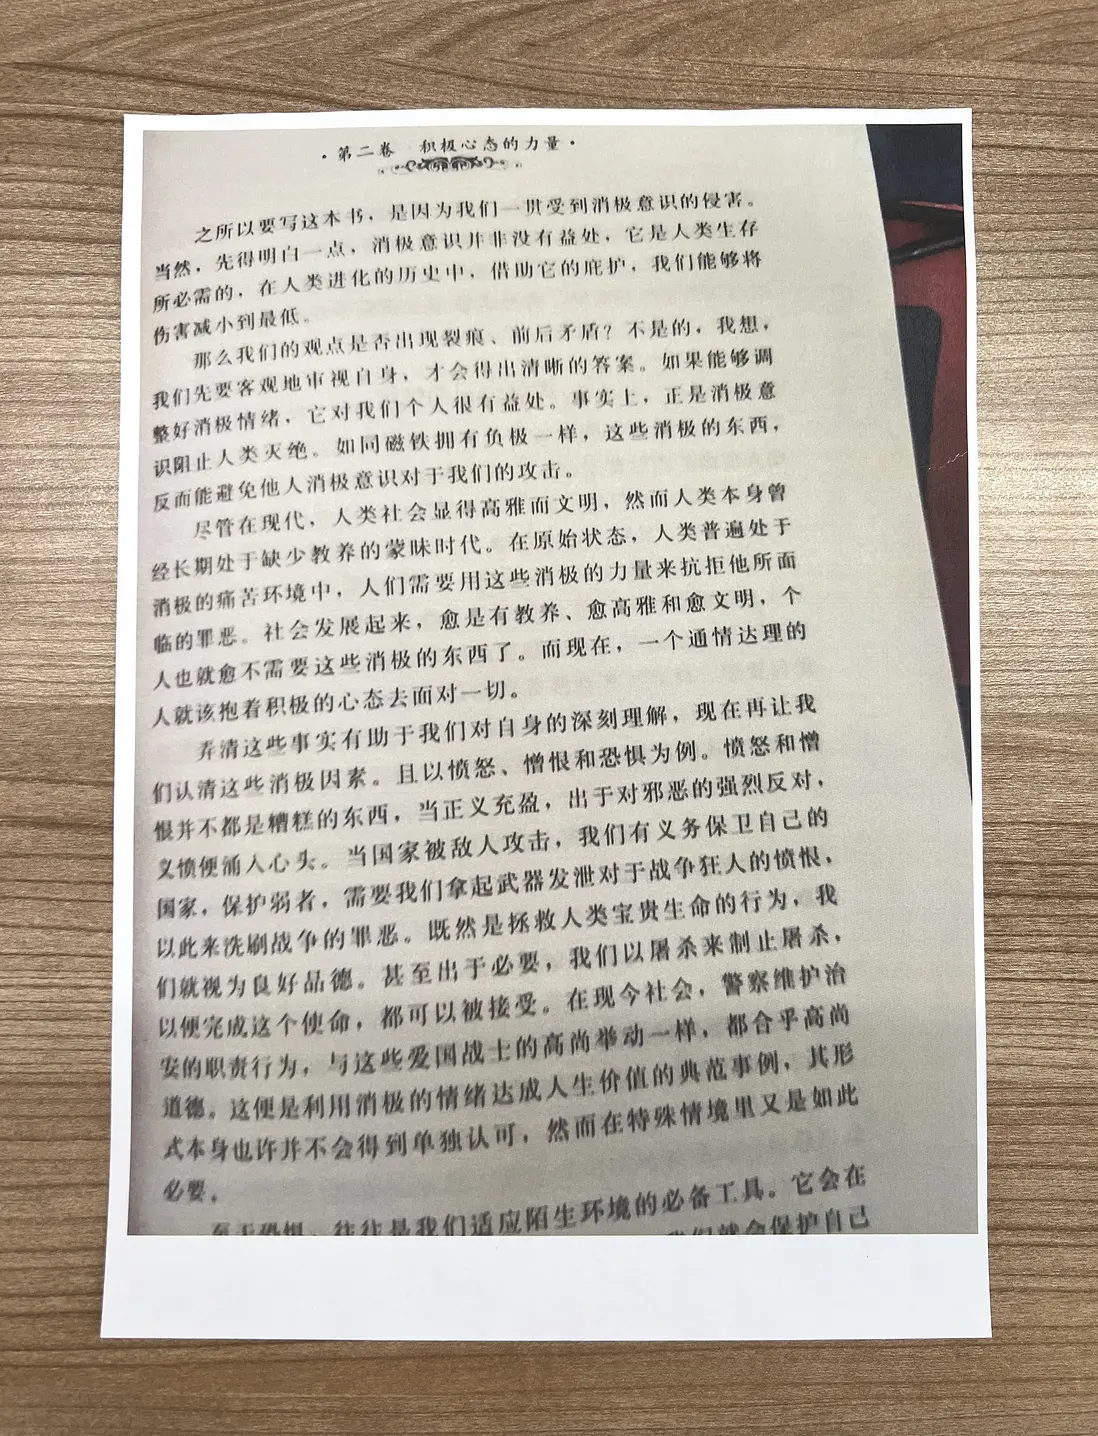 ·第二卷 积极心态的力量·
之所以要写这本书，是因为我们一贯受到消极意识的侵害。
当然，先得明白一点，消极意识并非没有益处，它是人类生存
所必需的，在人类进化的历史中，借助它的庇护，我们能够将
伤害减小到最低。
那么我们的观点是否出现裂痕、前后矛盾？不是的，我想，
我们先要客观地审视自身，才会得出清晰的答案。如果能够调
整好消极情绪，它对我们个人很有益处。事实上，正是消极意
识阻止人类灭绝。如同磁铁拥有负极一样，这些消极的东西，
反而能避免他人消极意识对于我们的攻击。
尽管在现代，人类社会显得高雅而文明，然而人类本身曾
经长期处于缺少教养的蒙昧时代。在原始状态，人类普遍处于
消极的痛苦环境中，人们需要用这些消极的力量来抗拒他所面
临的罪恶。社会发展起来，愈是有教养、愈高雅和愈文明，个
人也就愈不需要这些消极的东西了。而现在，一个通情达理的
人就该抱着积极的心态去面对一切。
弄清这些事实有助于我们对自身的深刻理解，现在再让我
们认清这些消极因素。且以愤怒、憎恨和恐惧为例。愤怒和憎
恨并不都是糟糕的东西，当正义充盈，出于对邪恶的强烈反对，
义愤便涌入心头。当国家被敌人攻击，我们有义务保卫自己的
国家，保护弱者，需要我们拿起武器发泄对于战争狂人的愤恨，
以此来洗刷战争的罪恶。既然是拯救人类宝贵生命的行为，我
们就视为良好品德。甚至出于必要，我们以屠杀来制止屠杀，
以便完成这个使命，都可以被接受。在现今社会，警察维护治
安的职责行为，与这些爱国战士的高尚举动一样，都合乎高尚
道德。这便是利用消极的情绪达成人生价值的典范事例，其形
式本身也许并不会得到单独认可，然而在特殊情境里又是如此
必要。
至于恐惧，往往是我们适应陌生环境的必备工具。它会在
我们就会保护自己